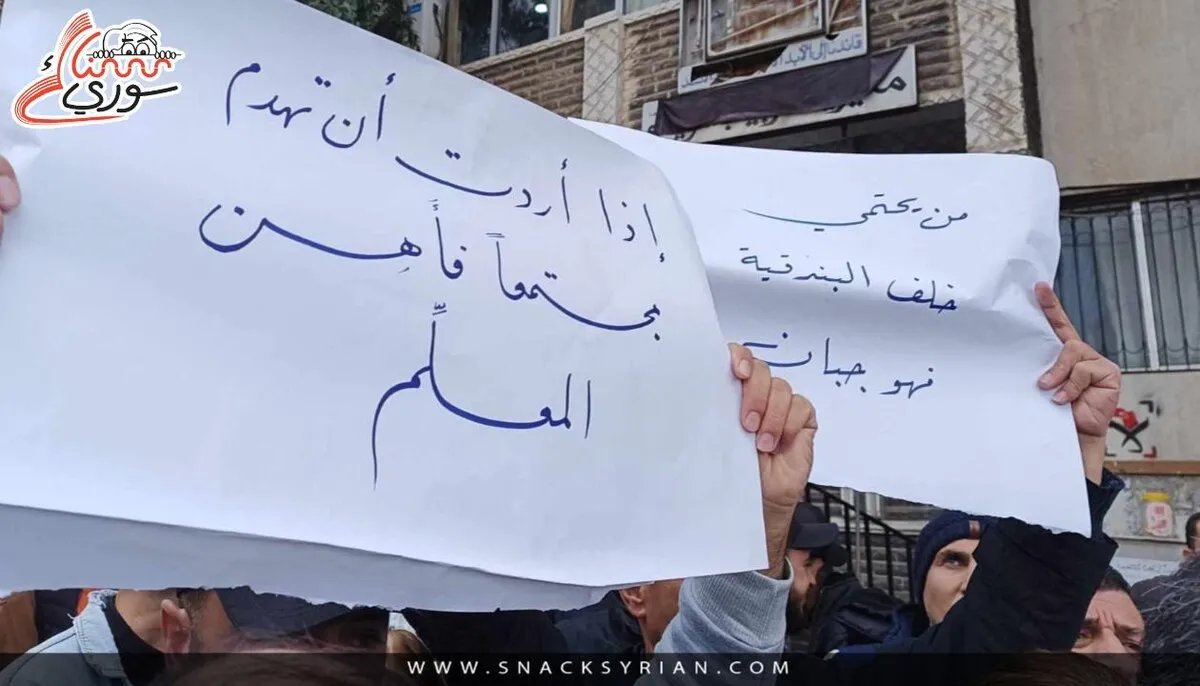 سناك سوري
إذا أردت أن تهدم
مجتمعاً فأَهِن
المعلِّم
من يحتمي
خلف البندقية
فهو جبان
قائدنا إلى الأبد
WWW.SNACKSYRIAN.COM